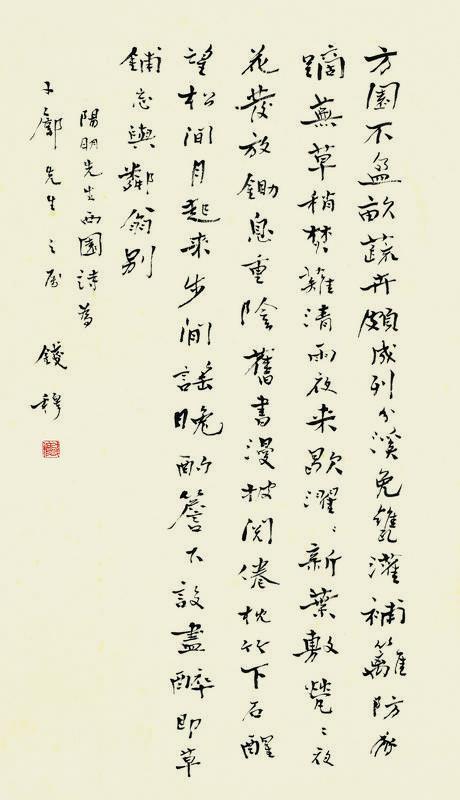 方園不盈畝蔬卉頗成列分溪免甕灌補籬防豕
蹢蕪草稍焚薙清雨夜來歇濯〻新葉敷熒〻夜
花發放鋤息重陰舊書漫披閱倦枕竹下石醒
望松間月起來步閒謠晚酌簷下設盡醉即草
鋪忘與鄰翁別
陽明先生西園詩為
子廓先生之屬 錢穆